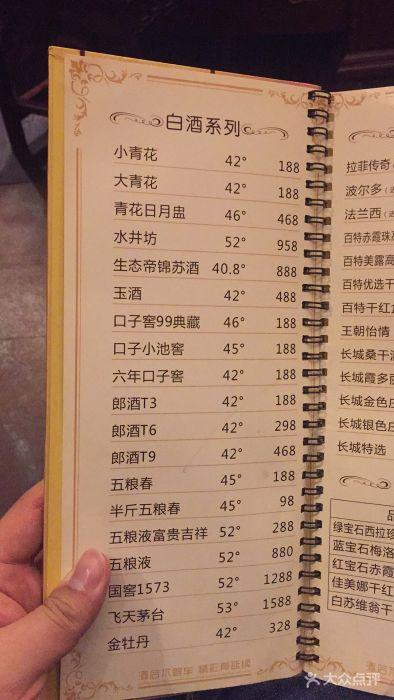 白酒系列
小青花 42° 188
大青花 42° 188
青花日月盅 46° 468
水井坊 52° 958
生态帝锦苏酒 40.8° 888
玉酒 42° 488
口子窖99典藏 46° 188
口子小池窖 45° 188
六年口子窖 42° 188
郎酒T3 42° 188
郎酒T6 42° 298
郎酒T9 42° 468
五粮春 45° 188
半斤五粮春 45° 98
五粮液富贵吉祥 52° 288
五粮液 52° 880
国窖1573 52° 1288
飞天茅台 53° 1588
金牡丹 42° 328
酒后不驾车 精彩有延续
拉菲传奇
波尔多
法兰西
百特赤霞珠
百特美露高
百特优选干
百特干红
王朝怡情
长城桑干
长城霞多
长城金色
长城银色
长城特选
品
绿宝石西拉珍
蓝宝石梅洛
红宝石赤霞
佳美娜干红
白苏维翁干
大众点评